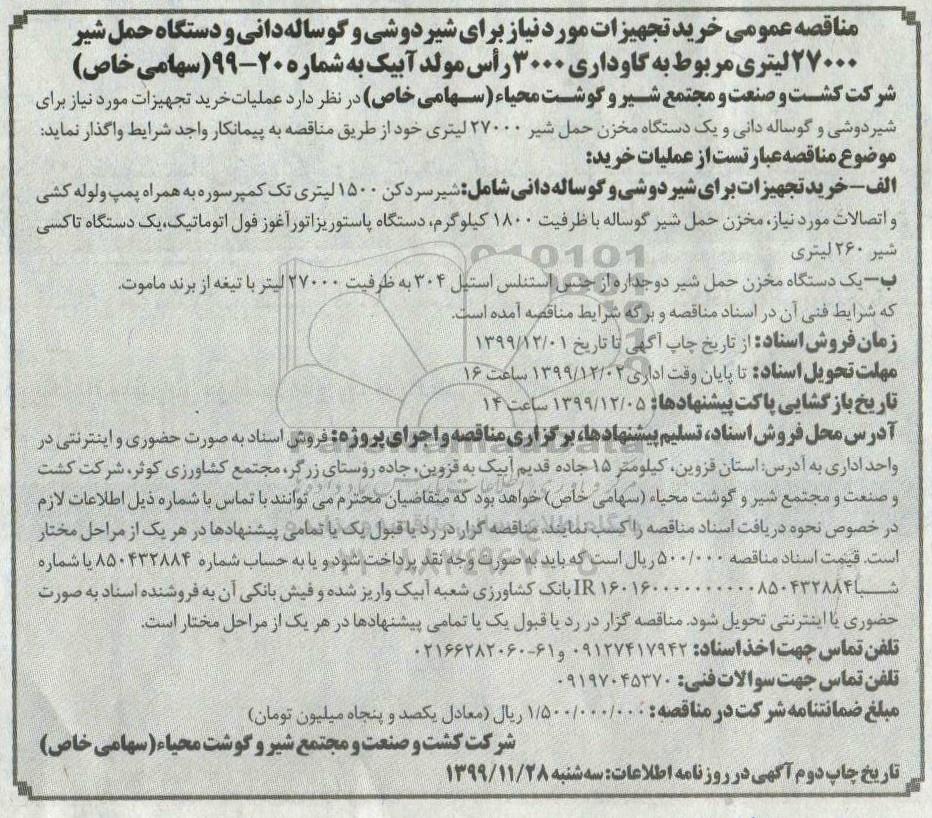 مناقصه عمومی خرید تجهیزات مورد نیاز برای شیردوشی و گوساله دانی و دستگاه حمل شیر
۲۷۰۰۰ لیتری مربوط به گاوداری ۳۰۰۰ رأس مولد آبیک به شماره ۲۰-۹۹ (سهامی خاص)
شرکت کشت و صنعت و مجتمع شیر و گوشت محیاء (سهامی خاص) در نظر دارد عملیات خرید تجهیزات مورد نیاز برای
شیردوشی و گوساله دانی و یک دستگاه مخزن حمل شیر ۲۷۰۰۰ لیتری خود از طریق مناقصه به پیمانکار واجد شرایط واگذار نماید:
موضوع مناقصه عبارتست از عملیات خرید:
الف- خرید تجهیزات برای شیردوشی و گوساله دانی شامل: شیر سردکن ۱۵۰۰ لیتری تک کمپرسوره به همراه پمپ و لوله کشی
و اتصالات مورد نیاز، مخزن حمل شیر گوساله با ظرفیت ۱۸۰۰ کیلوگرم، دستگاه پاستوریزاتور آغوز فول اتوماتیک، یک دستگاه تاکسی
شیر ۲۶۰ لیتری
ب- یک دستگاه مخزن حمل شیر دوجداره از جنس استنلس استیل ۳۰۴ به ظرفیت ۲۷۰۰۰ لیتر با تیغه از برند ماموت.
که شرایط فنی آن در اسناد مناقصه و برگه شرایط مناقصه آمده است.
زمان فروش اسناد: از تاریخ چاپ آگهی تا تاریخ ۱۳۹۹/۱۲/۰۱
مهلت تحویل اسناد: تا پایان وقت اداری ۱۳۹۹/۱۲/۰۲ ساعت ۱۶
تاریخ بازگشایی پاکت پیشنهادها: ۱۳۹۹/۱۲/۰۵ ساعت ۱۴
آدرس محل فروش اسناد، تسلیم پیشنهادها، برگزاری مناقصه و اجرای پروژه: فروش اسناد به صورت حضوری و اینترنتی در
واحد اداری به آدرس: استان قزوین، کیلومتر ۱۵ جاده قدیم آبیک به قزوین، جاده روستای زرگر، مجتمع کشاورزی کوثر، شرکت کشت
و صنعت و مجتمع شیر و گوشت محیاء (سهامی خاص) خواهد بود که متقاضیان محترم می توانند با تماس با شماره ذیل اطلاعات لازم
در خصوص نحوه دریافت اسناد مناقصه را کسب نمایند. مناقصه گزار در رد یا قبول یک یا تمامی پیشنهادها در هر یک از مراحل مختار
است. قیمت اسناد مناقصه ۵۰۰/۰۰۰ ریال است که باید به صورت وجه نقد پرداخت شود و یا به حساب شماره ۸۵۰۴۳۲۸۸۴ یا شماره
شبا IR ۱۶۰۱۶۰۰۰۰۰۰۰۰۰۰۰۸۵۰۴۳۲۸۸۴ بانک کشاورزی شعبه آبیک واریز شده و فیش بانکی آن به فروشنده اسناد به صورت
حضوری یا اینترنتی تحویل شود. مناقصه گزار در رد یا قبول یک یا تمامی پیشنهادها در هر یک از مراحل مختار است.
تلفن تماس جهت اخذ اسناد: ۰۹۱۲۷۴۱۷۹۴۲ و ۶۱-۰۲۱۶۶۲۸۲۰۶۰
تلفن تماس جهت سوالات فنی: ۰۹۱۹۷۰۴۵۳۷۰
مبلغ ضمانتنامه شرکت در مناقصه: ۱/۵۰۰/۰۰۰/۰۰۰ ریال (معادل یکصد و پنجاه میلیون تومان)
شرکت کشت و صنعت و مجتمع شیر و گوشت محیاء (سهامی خاص)
تاریخ چاپ دوم آگهی در روزنامه اطلاعات: سه شنبه ۱۳۹۹/۱۱/۲۸